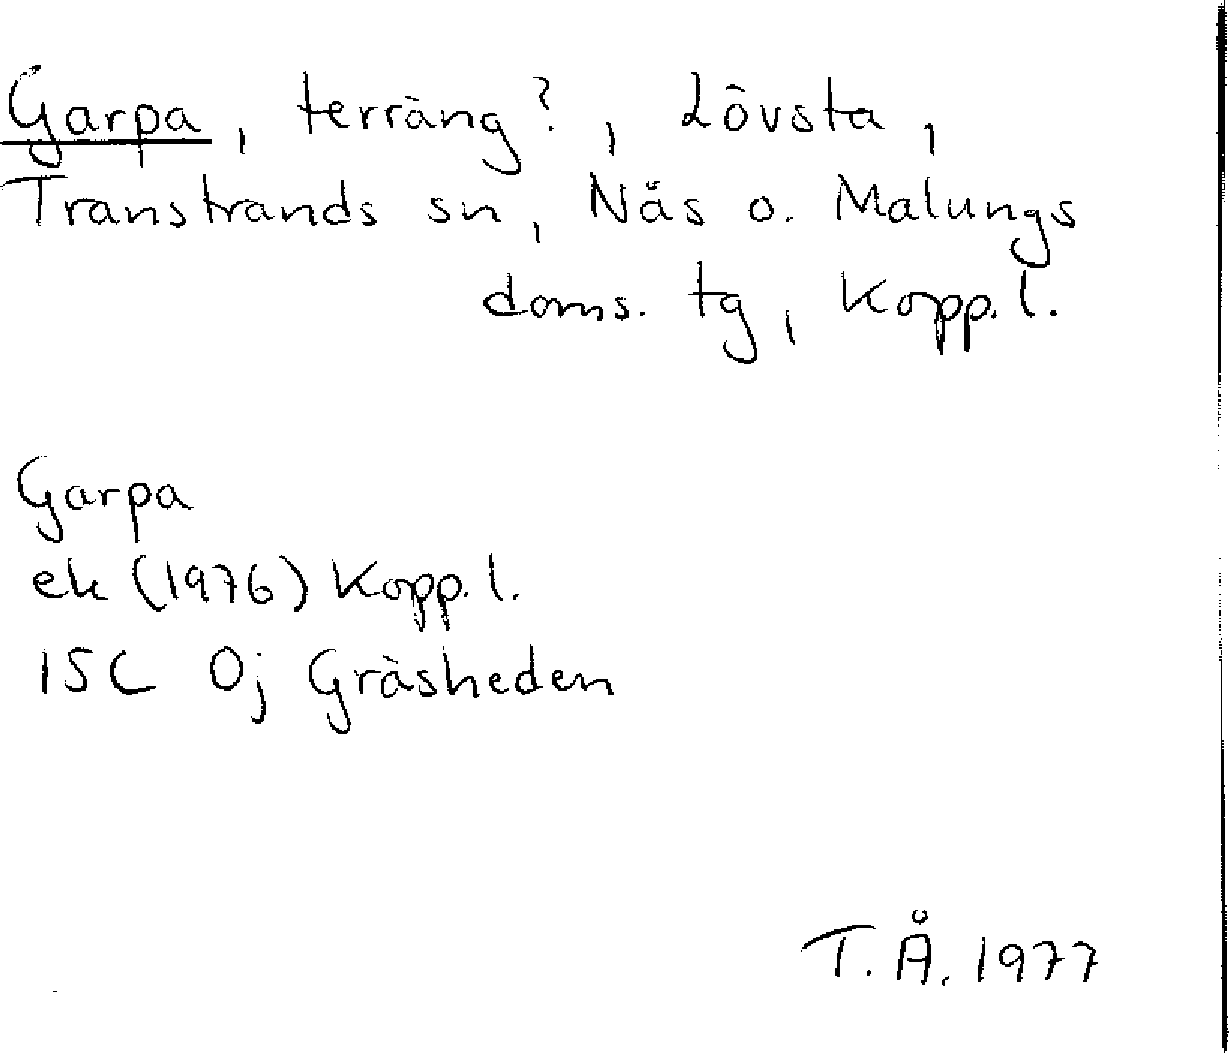 Garpa, terräng?, Lövsta,
Transtrands sn, Näs o. Malungs
doms. tg, Kopp. l.
Garpa
ek (1976) Kopp. l.
15C 0j Gräsheden
T.Å. 1977